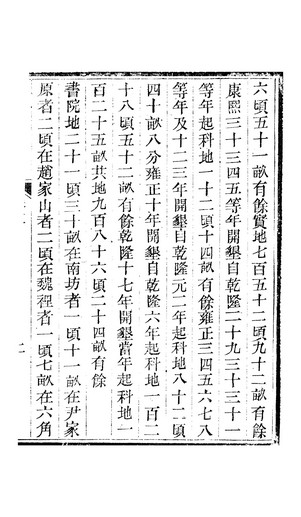 六頃五十一畝有餘實地七百五十二頃九十二畝有餘
康熙三十三四五等年開墾自乾隆二十九三十三十一
等年起科地一十二頃十四畝有餘雍正三四五六七八
等年及十二三年開墾自乾隆元二年起科地八十二頃
四十畝八分雍正十年開墾自乾隆六年起科地一百二
十八頃五十二畝有餘乾隆十七年開墾當年起科地一
百二十五畝共地九百八十六頃二十四畝有餘
書院地二十一頃三十畝在南坊者一頃十一畝在尹家
原者二頃在趙家山者二頃在魏裡者一頃七畝在六角